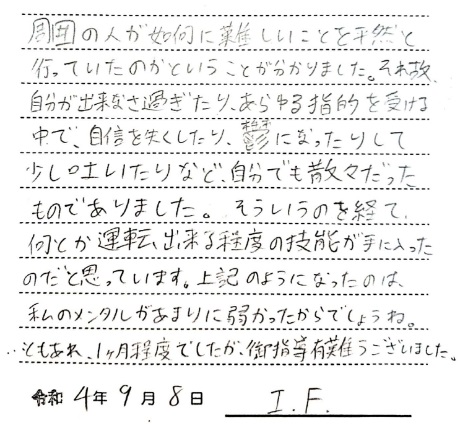 周囲の人が如何に難しいことを平然と
行っていたのかということが分かりました。それ故、
自分が出来なさ過ぎたり、あらゆる指的を受ける
中で、自信を失くしたり、鬱になったりして
少し吐いたりなど、自分でも散々だった
ものでありました。そういうのを経て、
何とか運転出来る程度の技能が手に入った
のだと思っています。上記のようになったのは、
私のメンタルがあまりに弱かったからでしょうね。
…ともあれ、1ヶ月程度でしたが、御指導有難うございました。
令和4年9月8日 I.F.